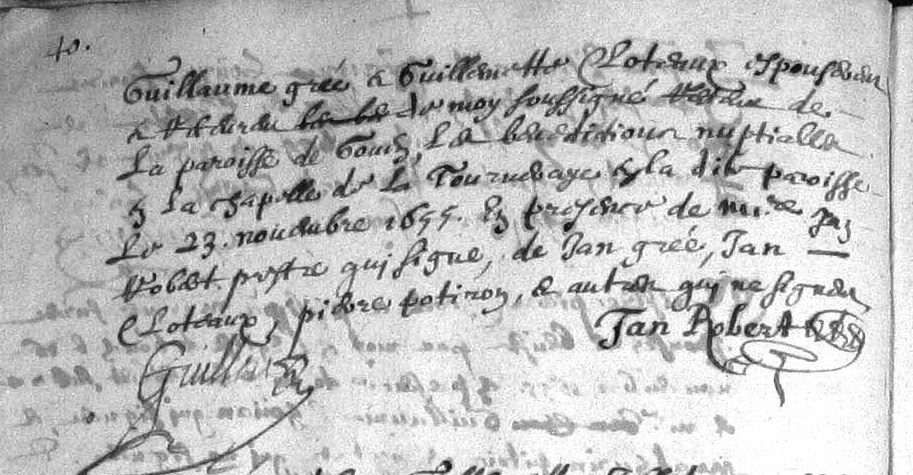 40.
Guillaume greé & Guillemette Cloteaux espouserent
& reseurent de moy soussigné Recteur de
La paroisse de Gouis, La benediction nuptialle
En La chapelle de La Tourneraye En la dite paroisse
Le 23. novembre 1655. En presence de me. re Jan
Robert prestre qui signe, de Jan greé, Jan —
Cloteaux, pierre potiron, & autres qui ne signent
Jan Robert
Guill